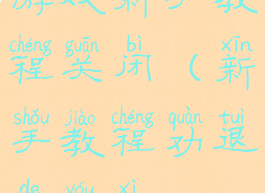 游戏新手教
chéng guān bì xīn
程关闭(新
shǒu jiào chéng quàn tuì
手教程劝退
de yóu xì